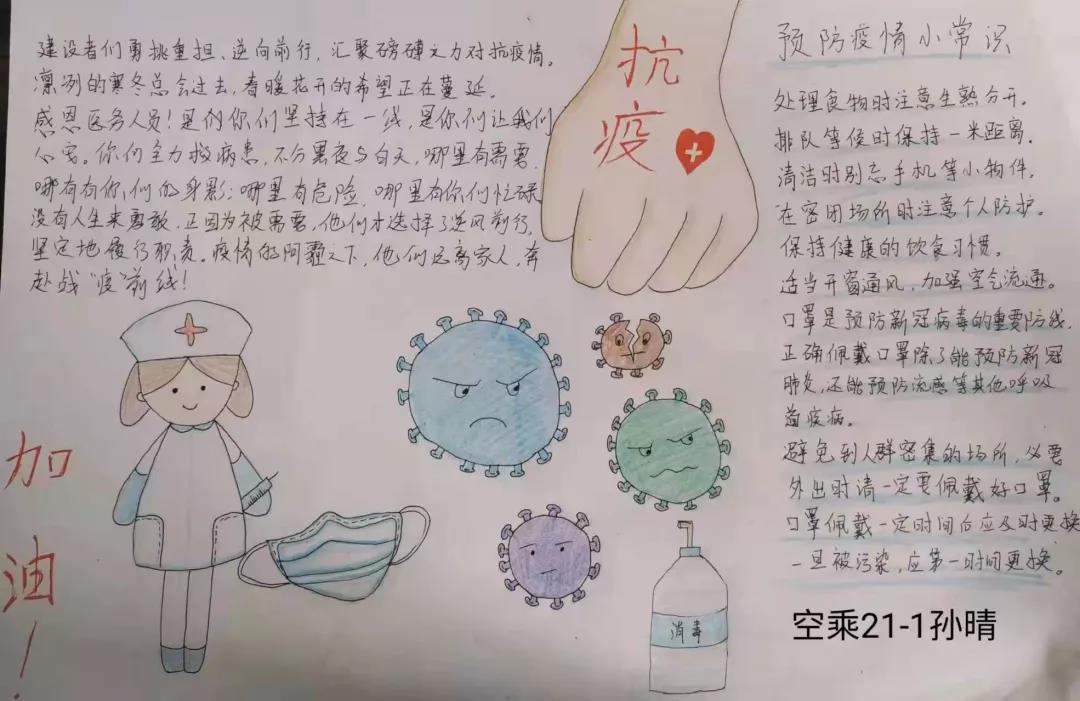 建设者们勇挑重担、逆向前行，汇聚磅礴之力对抗疫情。
凛冽的寒冬总会过去，春暖花开的希望正在蔓延。
感恩医务人员！是你们坚持在一线，是你们让我们
心安。你们全力救病患，不分黑夜与白天，哪里有需要
哪有有你们的身影；哪里有危险，哪里有你们忙碌
没有人生来勇敢，正因为被需要，他们才选择了逆风前行，
坚定地履行职责。疫情的阴霾之下，他们远离家人，奔
赴战“疫”前线！
抗
疫
预防疫情小常识
处理食物时注意生熟分开。
排队等候时保持一米距离。
清洁时别忘手机等小物件。
在密闭场所时注意个人防护。
保持健康的饮食习惯。
适当开窗通风，加强空气流通。
口罩是预防新冠病毒的重要防线，
正确佩戴口罩除了能预防新冠
肺炎，还能预防流感等其他呼吸
道疾病。
避免到人群密集的场所，必要
外出时请一定要佩戴好口罩。
口罩佩戴一定时间后应及时更换
一旦被污染，应第一时间更换。
加
油
！
消毒
空乘21-1孙晴